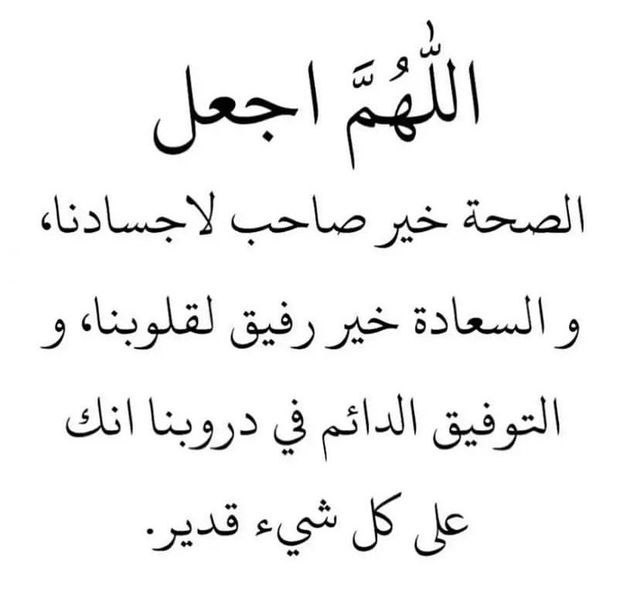 اللّٰهُمَّ اجعل
الصحة خير صاحب لاجسادنا،
و السعادة خير رفيق لقلوبنا، و
التوفيق الدائم في دروبنا انك
على كل شيء قدير.